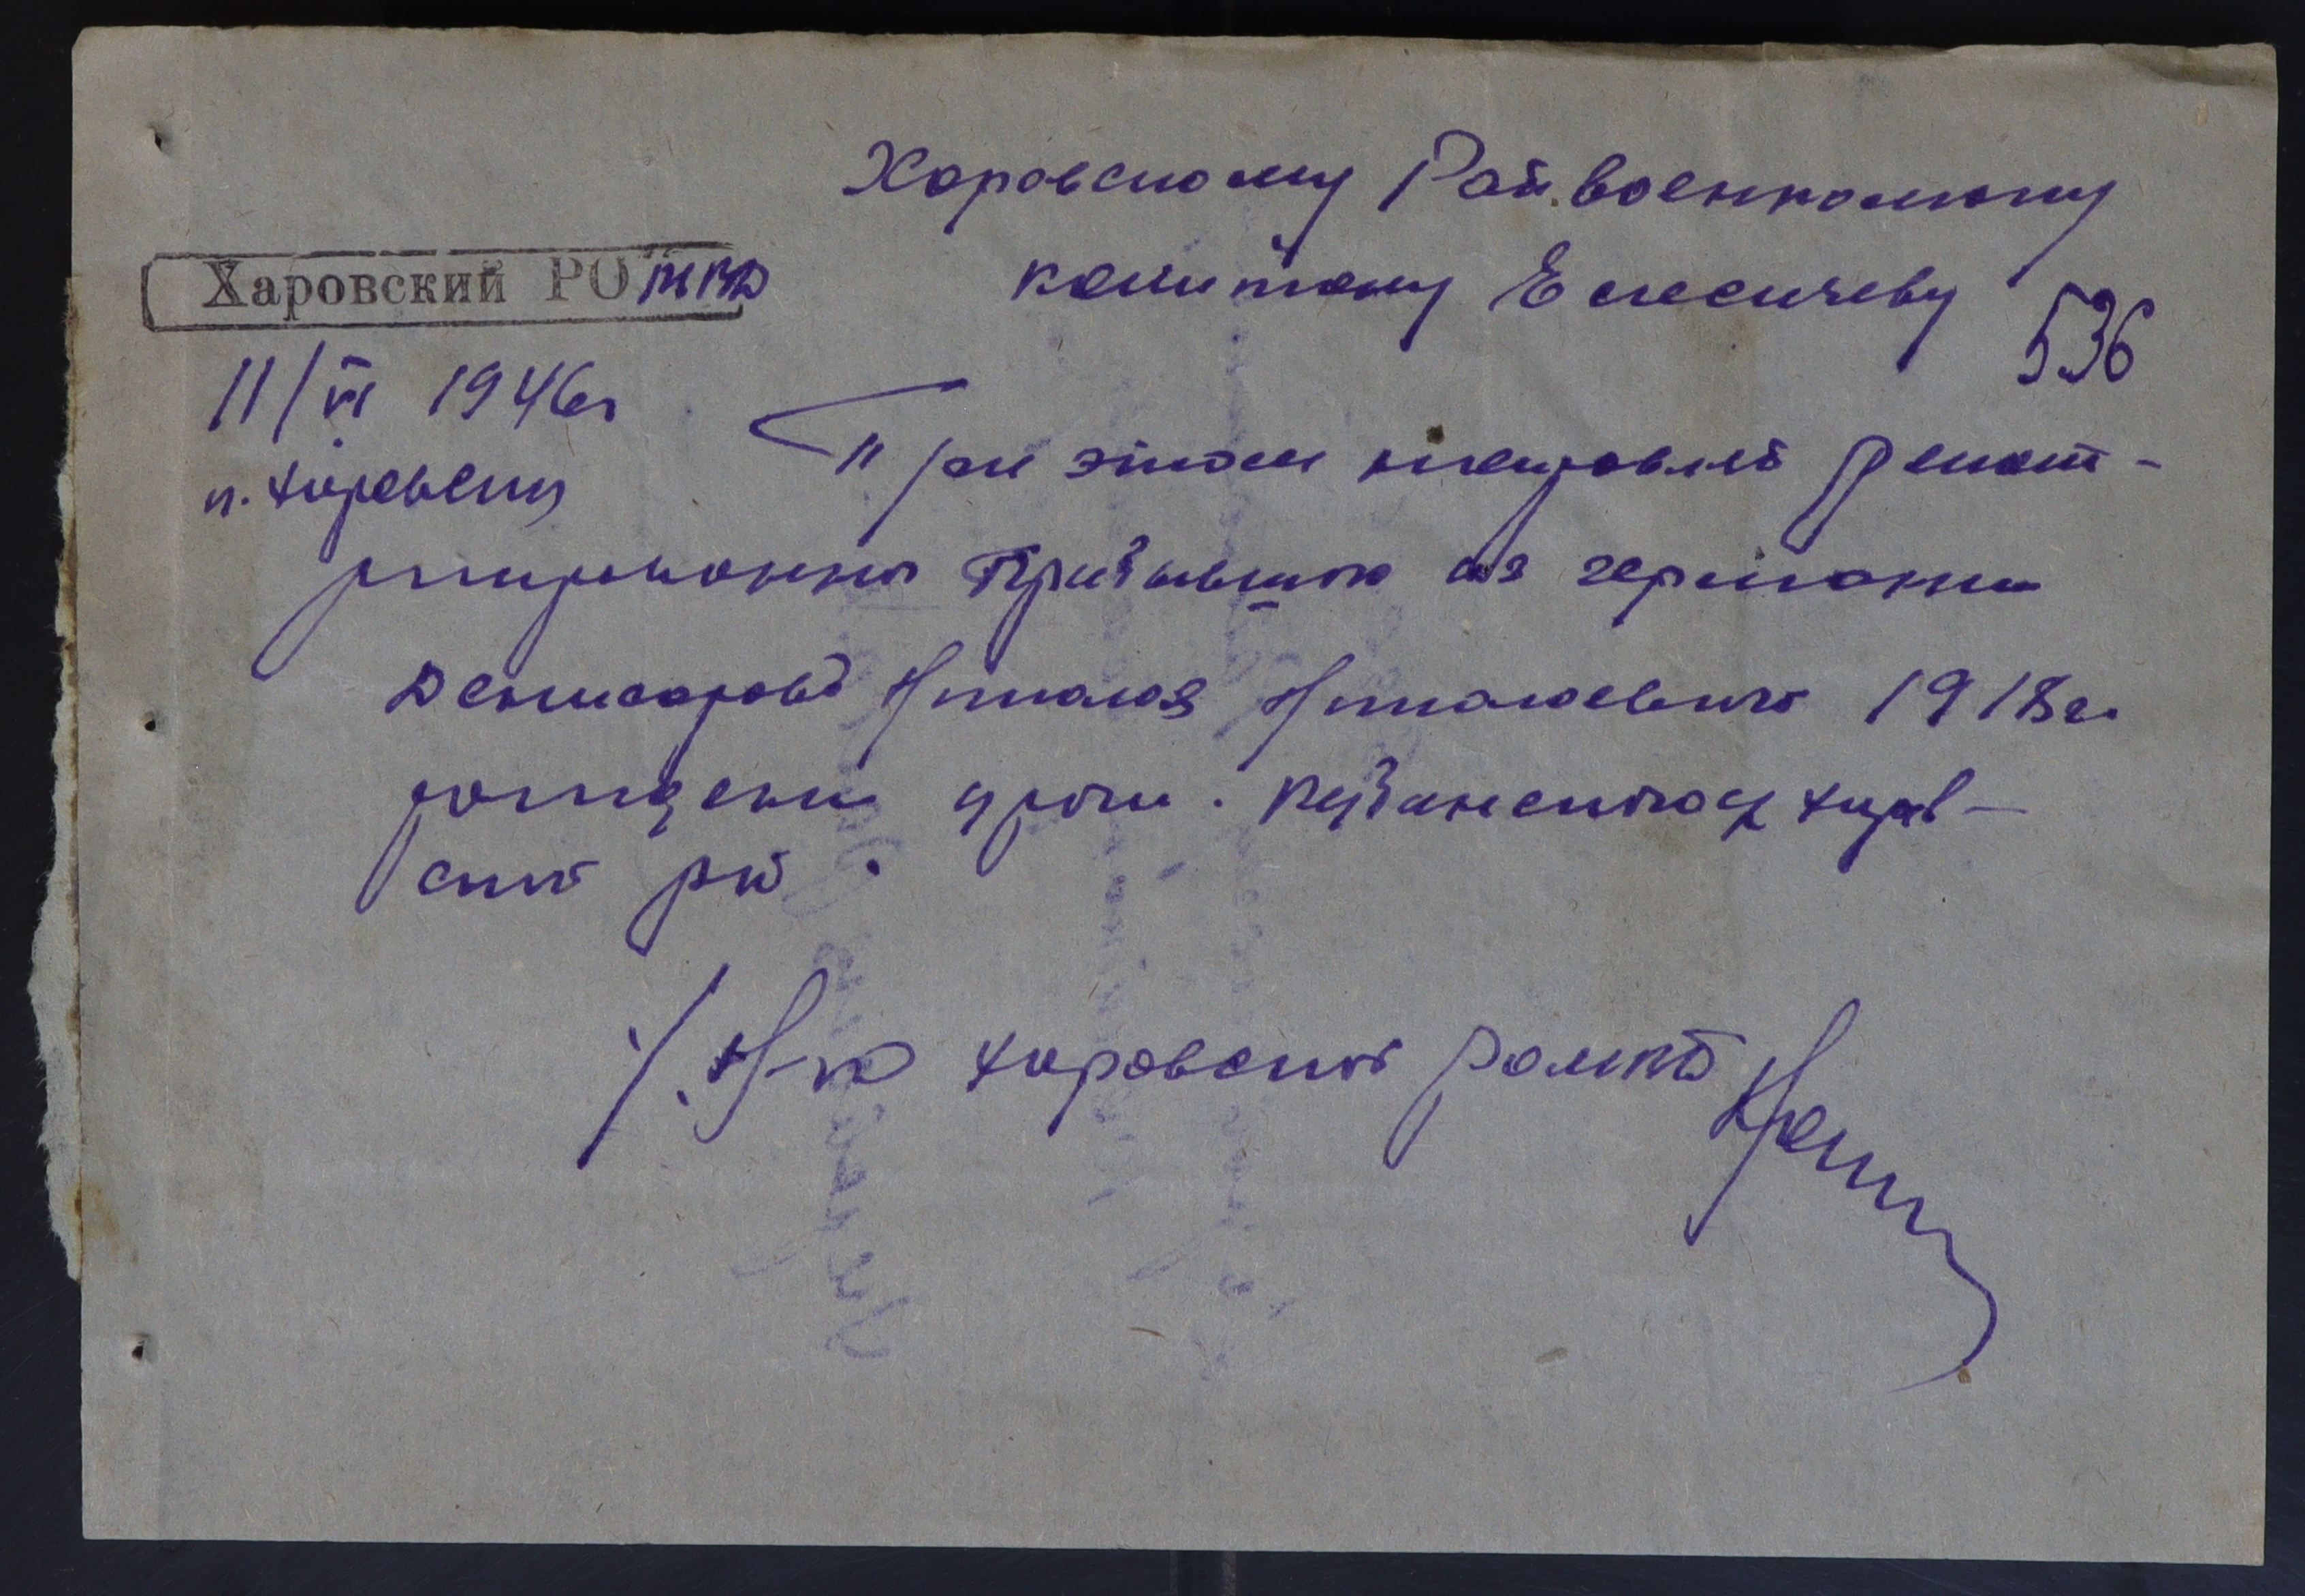 Харовскому Рай.военкому
капитану Елесичеву
Харовский РО МВД
536
11/VI 1946г
п. Харовск
При этом направляю репат-
риированного Прибывшего из германии
Николая Николаевича 1918г.
рождения урож. Кубенского Харов-
ского р-на.
Н-к Харовского РОМВД